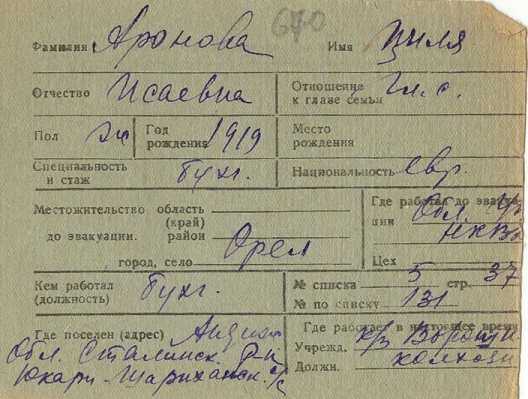 670
Фамилия Аронова Имя Циля
Отчество Исаевна Отношение к главе семьи гл. с.
Пол ж Год рождения 1919 Место рождения
Специальность и стаж бухг. Национальность евр.
Местожительство область (край)
до эвакуации. район
город, село Орел
Где работал до эвакуации Обл. НКВД
Цех
Кем работал (должность) бухг.
№ списка 5 стр. 37
№ по списку 131
Где поселен (адрес) Андижан
Обл. Сталинск. р-н
Юкари-Шариханск. с/с
Где работает в настоящее время
Учрежд. к/з Вороши
Должн. колхозн